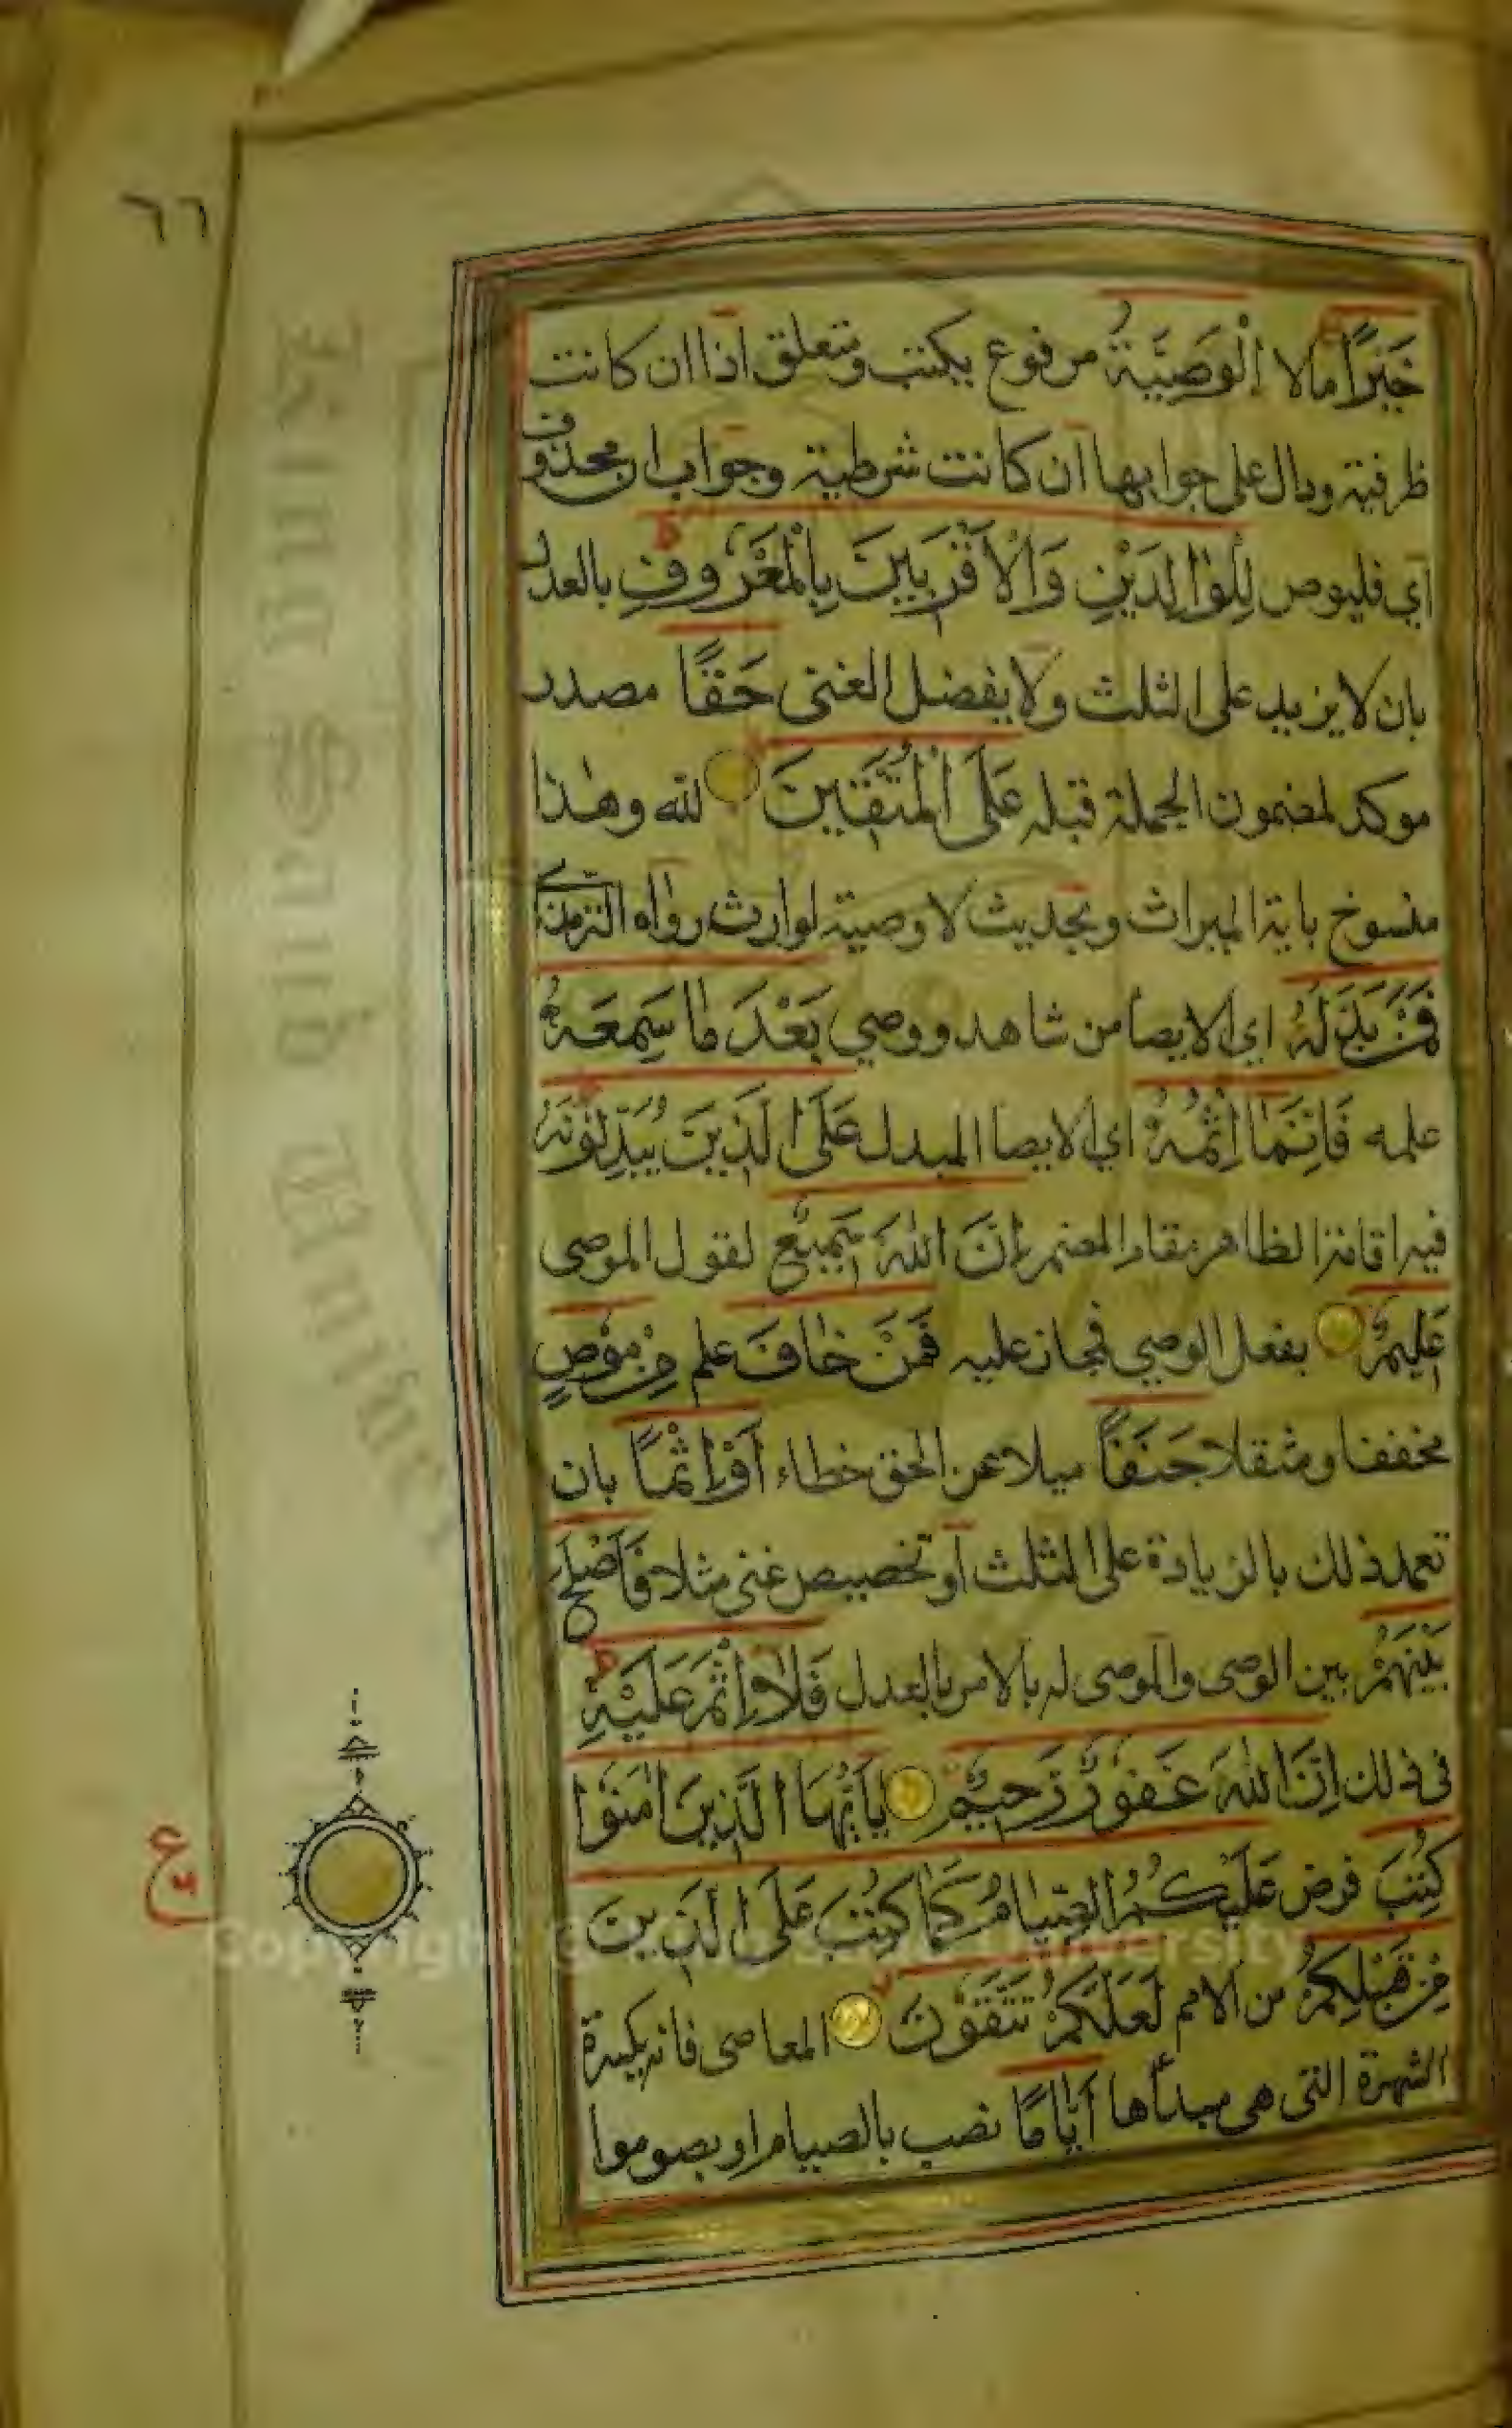 ٦٦
خَيْرًا مالا اَلْوَصِيَّةُ مرفوع بكتب ومتعلق اذا ان كانت
ظرفية ودال على جوابها ان كانت شرطية وجواب ان محذوف
اي فليوص لِلْوٰالِدَيْنِ وَالْاَقْرَبِينَ بِالْمَعْرُوفِ بالعدل
بان لا يزيد على الثلث ولا يفضل الغنى حَقًّا مصدر
موكد لمضمون الجملة قبله عَلَى الْمُتَّقِينَ لله وهذا
منسوخ باية الميراث وبحديث لا وصية لوارث رواه الترمذي
فَمَنْ بَدَّلَهُ اي الايصا من شاهد ووصي بَعْدَ مٰا سَمِعَهُ
علمه فَاِنَّمٰا اِثْمُهُ اي الايصا المبدل عَلَى الَّذِينَ يُبَدِّلُونَهُ
فيه اقامة الظاهر مقام المضمر اِنَّ اللّٰهَ سَمِيعٌ لقول الموصى
عَلِيمٌ بفعل الوصي فمجاز عليه فَمَنْ خٰافَ علم مِنْ مُوصٍ
مخففا ومثقلا جَنَفًا ميلا عن الحق خطاء اَوْ اِثْمًا بان
تعمد ذلك بالزيادة على الثلث او تخصيص غنى مثلا فَاَصْلَحَ
بَيْنَهُمْ بين الوصى والموصى له بالامر بالعدل فَلٰا اِثْمَ عَلَيْهِ
فى ذلك اِنَّ اللّٰهَ غَفُورٌ رَحِيمٌ يٰاَيُّهَا الَّذِينَ اٰمَنُوا
كُتِبَ فرض عَلَيْكُمُ الصِّيٰامُ كَمٰا كُتِبَ عَلَى الَّذِينَ
مِنْ قَبْلِكُمْ من الامم لَعَلَّكُمْ تَتَّقُونَ المعاصى فانه يكسر
الشهوة التى هى مبدأها اَيّٰامًا نصب بالصيام او بصوموا
ع
Copyright © King Saud University